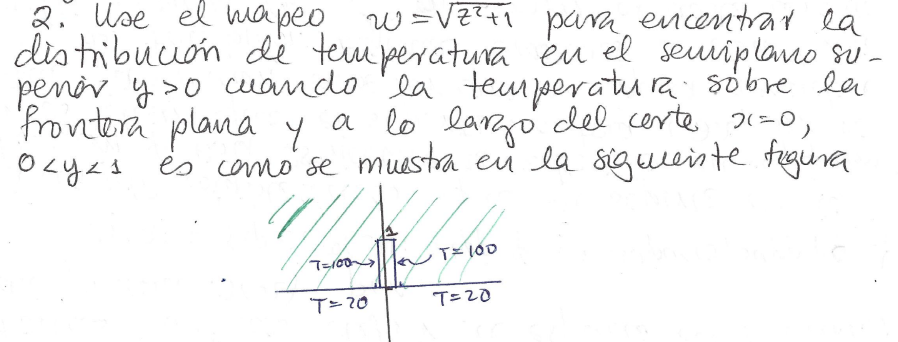 2. Use el mapeo w=√z²+1 para encontrar la
distribución de temperatura en el semiplano su-
perior y>0 cuando la temperatura sobre la
frontera plana y a lo largo del corte x=0,
0<y<1 es como se muestra en la siguiente figura
1
T=100 T=100
T=20 T=20